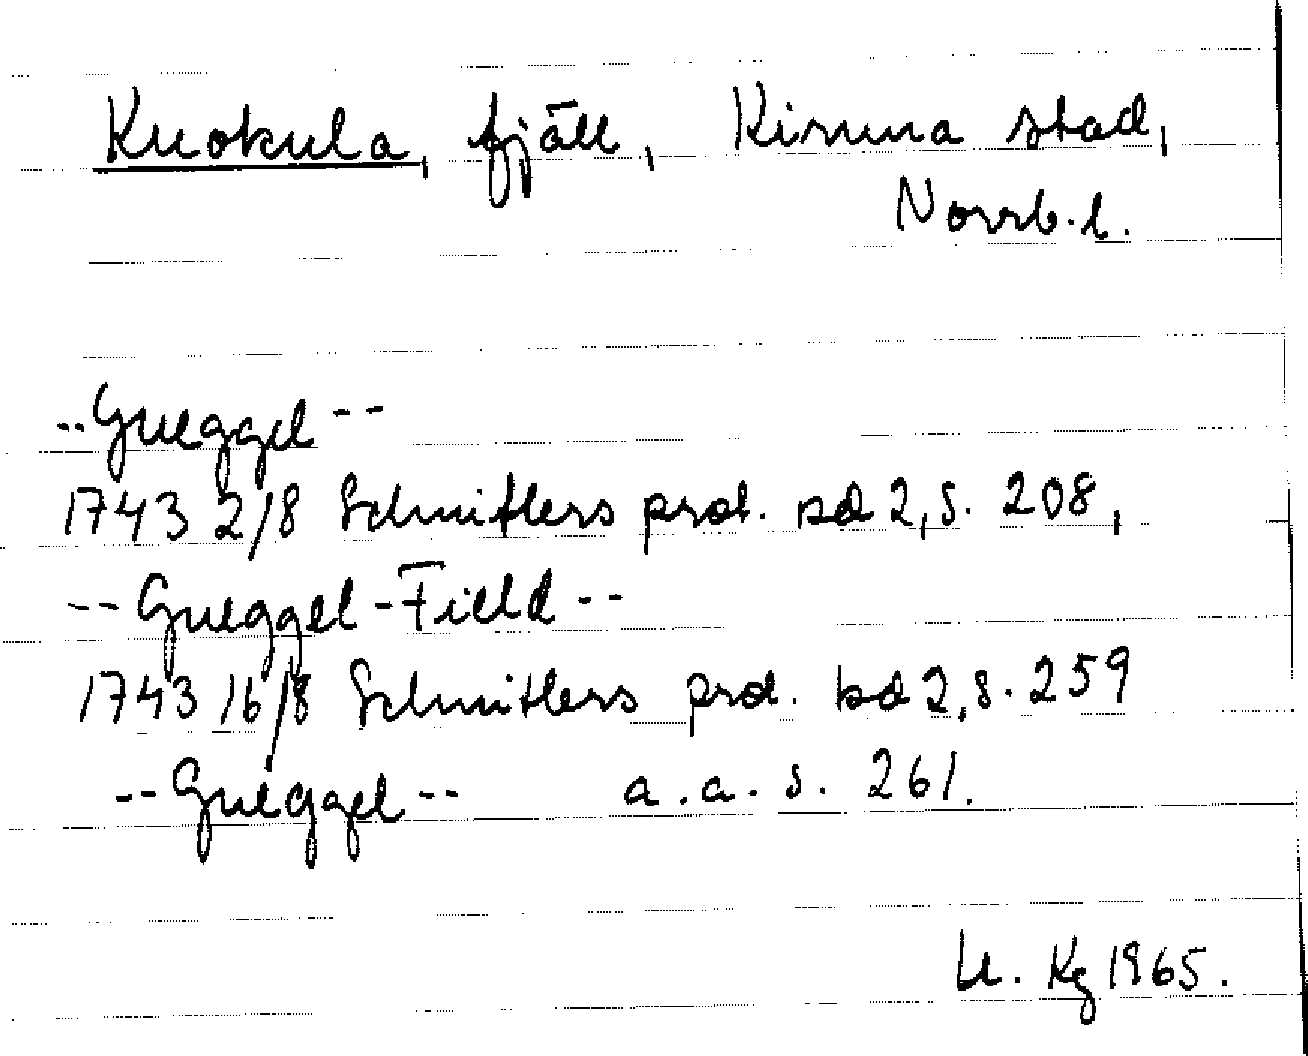 Kuokula, fjäll, Kiruna stad,
Norrb.l.
--Gueggel--
1743 2/8 Schnitlers prot. bd 2, s. 208,
--Gueggel-Field--
1743 16/8 Schnitlers prot. bd 2, s. 259
--Gueggel-- a.a. s. 261.
U. Kg 1965.